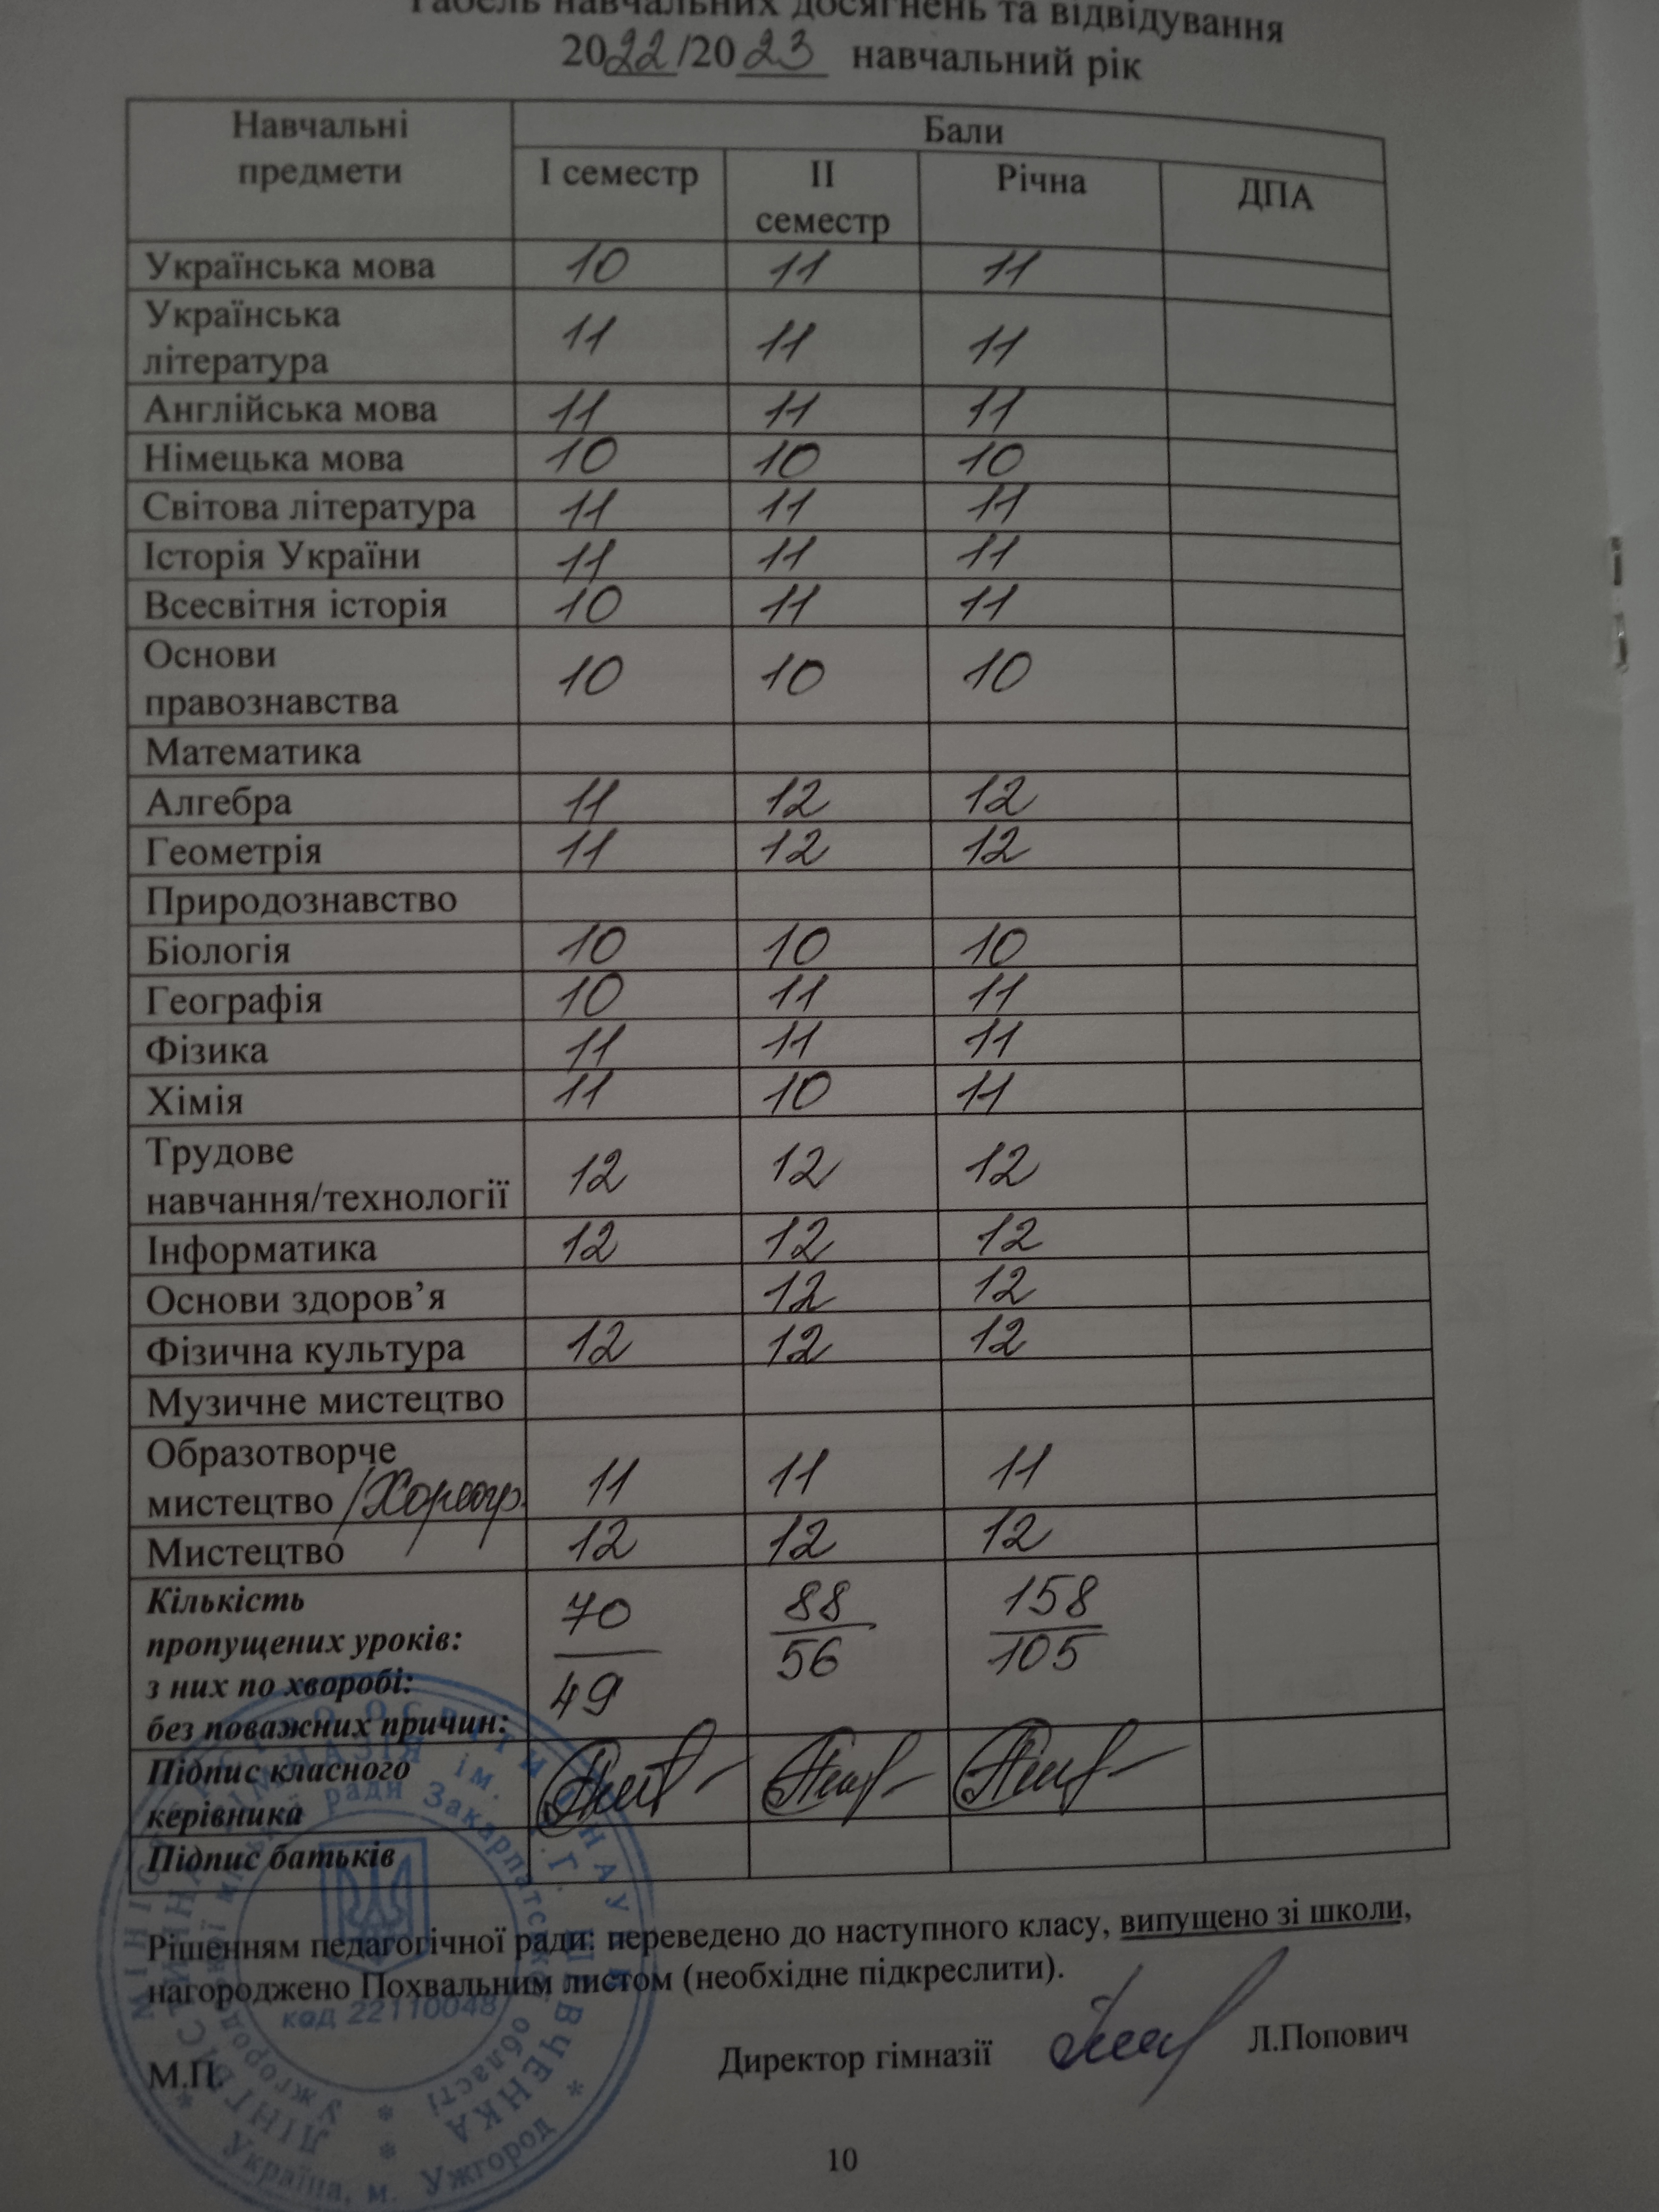 Табель навчальних досягнень та відвідування
2022/2023 навчальний рік
Навчальні предмети Бали
І семестр ІІ семестр Річна ДПА
Українська мова 10 11 11
Українська література 11 11 11
Англійська мова 11 11 11
Німецька мова 10 10 10
Світова література 11 11 11
Історія України 11 11 11
Всесвітня історія 10 11 11
Основи правознавства 10 10 10
Математика
Алгебра 11 12 12
Геометрія 11 12 12
Природознавство
Біологія 10 10 10
Географія 10 11 11
Фізика 11 11 11
Хімія 11 10 11
Трудове навчання/технології 12 12 12
Інформатика 12 12 12
Основи здоров’я 12 12
Фізична культура 12 12 12
Музичне мистецтво
Образотворче мистецтво /Хореогр. 11 11 11
Мистецтво 12 12 12
Кількість пропущених уроків: 70 88 158
з них по хворобі: 49 56 105
без поважних причин:
Підпис класного керівника
Підпис батьків
Рішенням педагогічної ради: переведено до наступного класу, випущено зі школи,
нагороджено Похвальним листом (необхідне підкреслити).
код 22110048
М.П. Директор гімназії Л.Попович
Україна, м. Ужгород
10